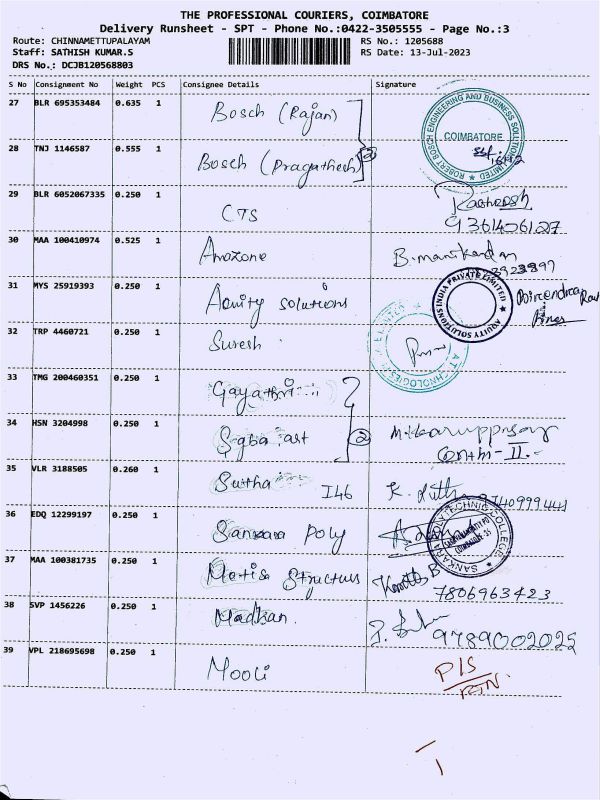 THE PROFESSIONAL COURIERS, COIMBATORE
Delivery Runsheet - SPT - Phone No.:0422-3505555 - Page No.:3
Route: CHINNAMETTUPALAYAM RS No.: 1205688
Staff: SATHISH KUMAR.S RS Date: 13-Jul-2023
DRS No.: DCJB120568803
S No Consignment No Weight PCS Consignee Details Signature
27 BLR 695353484 0.635 1 Bosch (Rajan)
ROBERT BOSCH ENGINEERING AND BUSINESS SOLUTIONS LIMITED
COIMBATORE
28 TNJ 1146587 0.555 1 Bosch (Pragatheeh) 2
29 BLR 6052067335 0.250 1 CTS
9361406127
30 MAA 100410974 0.525 1 Amazone B. manikandan
31 MYS 25919393 0.250 1 Aquity solutions
AQUITY SOLUTIONS INDIA PRIVATE LIMITED
32 TRP 4460721 0.250 1 Suresh
TECHNOLOGIES
33 TMG 200460351 0.250 1 Gayathri
34 HSN 3204998 0.250 1 2
35 VLR 3188505 0.260 1 Sutha I46
36 EDQ 12299197 0.250 1 Sankara poly
SANKARA POLYTECHNIC COLLEGE
37 MAA 100381735 0.250 1 7806963423
38 SVP 1456226 0.250 1 Madhan. 9789002025
39 VPL 218695698 0.250 1 Mooli P/S